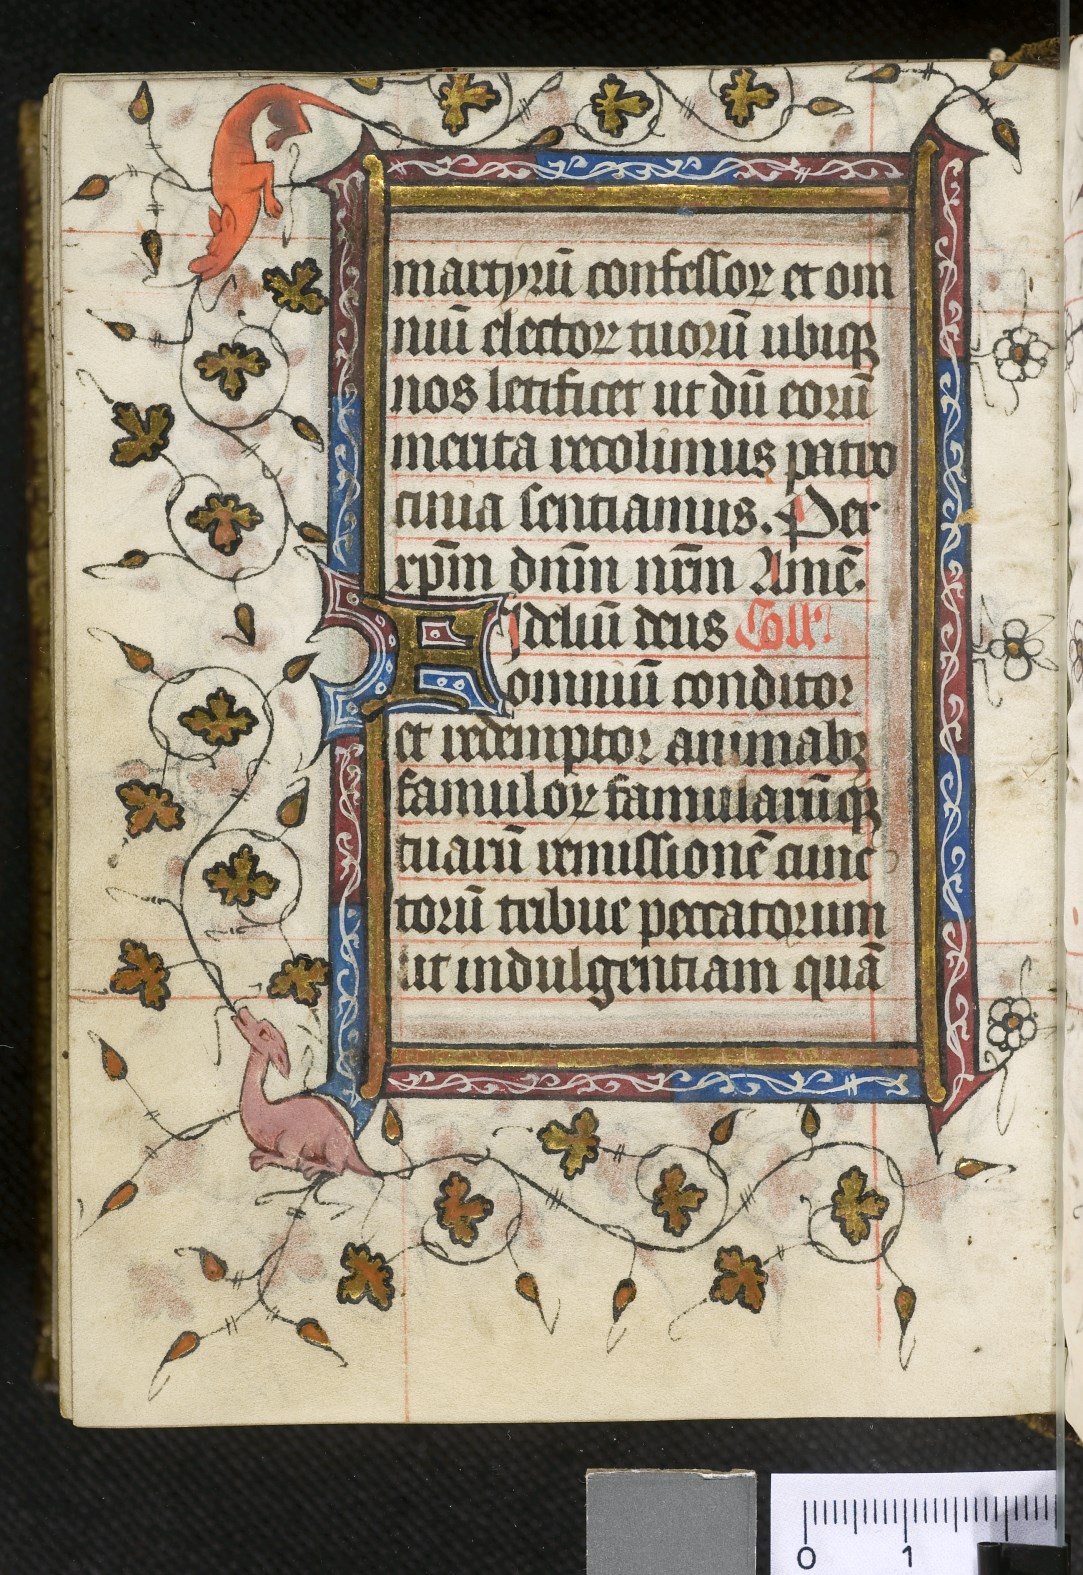 martyrū confessoꝝ et om
niū electoꝝ tuorū ubiqꝫ
nos letificet ut dū eorū
merita recolimus patro
cinia sentiamus. Per
xp̄m dn̄m nr̄m Amē.
Fidelium deus Coll'
omniū conditor
et redemptor animabꝫ
famuloꝝ famularūqꝫ
tuarū remissionē cunc
torū tribue peccatorum
ut indulgentiam quā
0 1